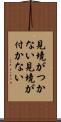 見境がつか
ない見境が
付かない